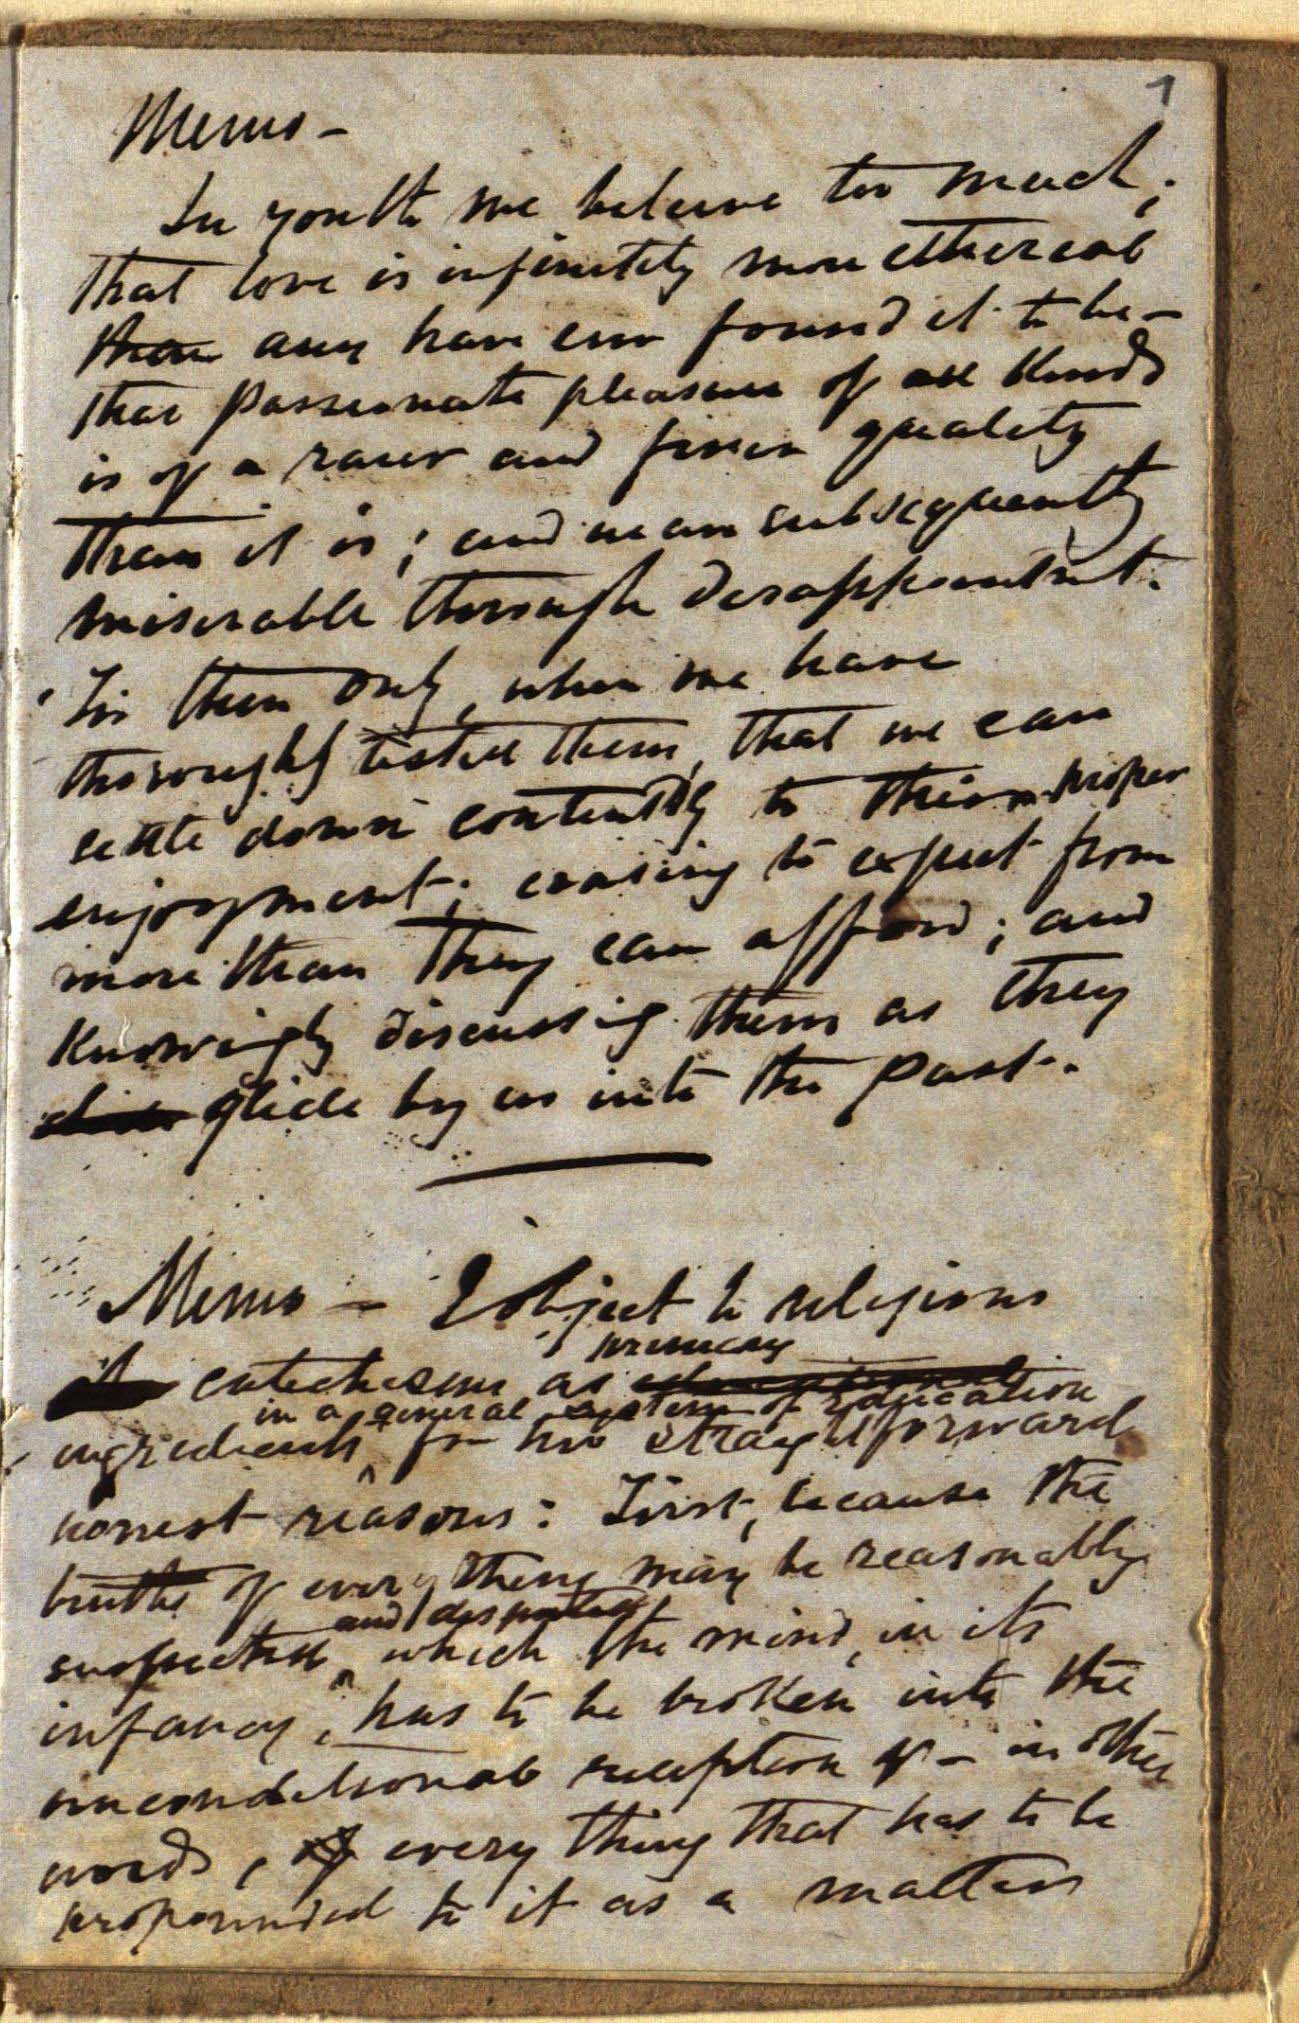 1
Memo –
In youth we beleive too much;
that love is infinitely more ethereal
than any have ever found it to be –
that passionate pleasure of all kinds
is of a rarer and finer quality
than it is; and we are subsequently
miserable through disappointmt.
'Tis then only, when we have
thoroughly tested them, that we can
settle down contentedly to their proper
enjoyment; ceasing to expect from
more than they can afford; and
knowingly discussing them as they
glide by us into the past.
Memo – I object to religious
primary
catechism as
in a general system of Education
ingredients for two straightforward
honest reasons: First, because the
truths of every thing may be reasonably
and disputed
suspected which the mind, in its
infancy, has to be broken into the
unconditional reception of – in other
words, of every thing that has to be
propounded to it as a matter